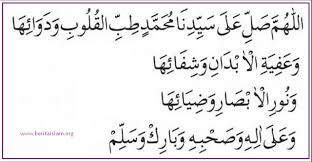 اَللّٰهُمَّ صَلِّ عَلَى سَيِّدِنَا مُحَمَّدٍ طِبِّ الْقُلُوْبِ وَدَوَائِهَا
وَعَافِيَةِ الْاَبْدَانِ وَشِفَائِهَا
وَنُوْرِ الْاَبْصَارِ وَضِيَائِهَا
وَعَلَى اٰلِهِ وَصَحْبِهِ وَبَارِكْ وَسَلِّمْ
www.beritaislam.org